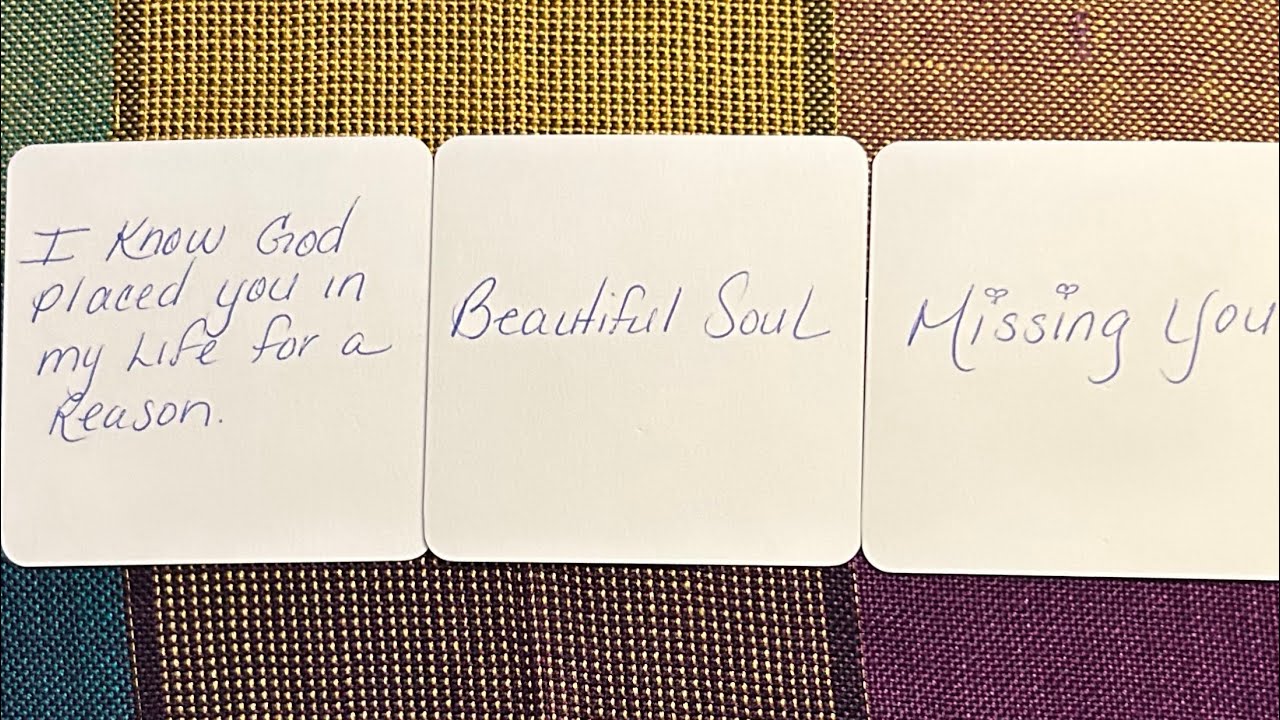 I Know God
placed you in
my Life for a
Reason.
Beautiful Soul
Missing You